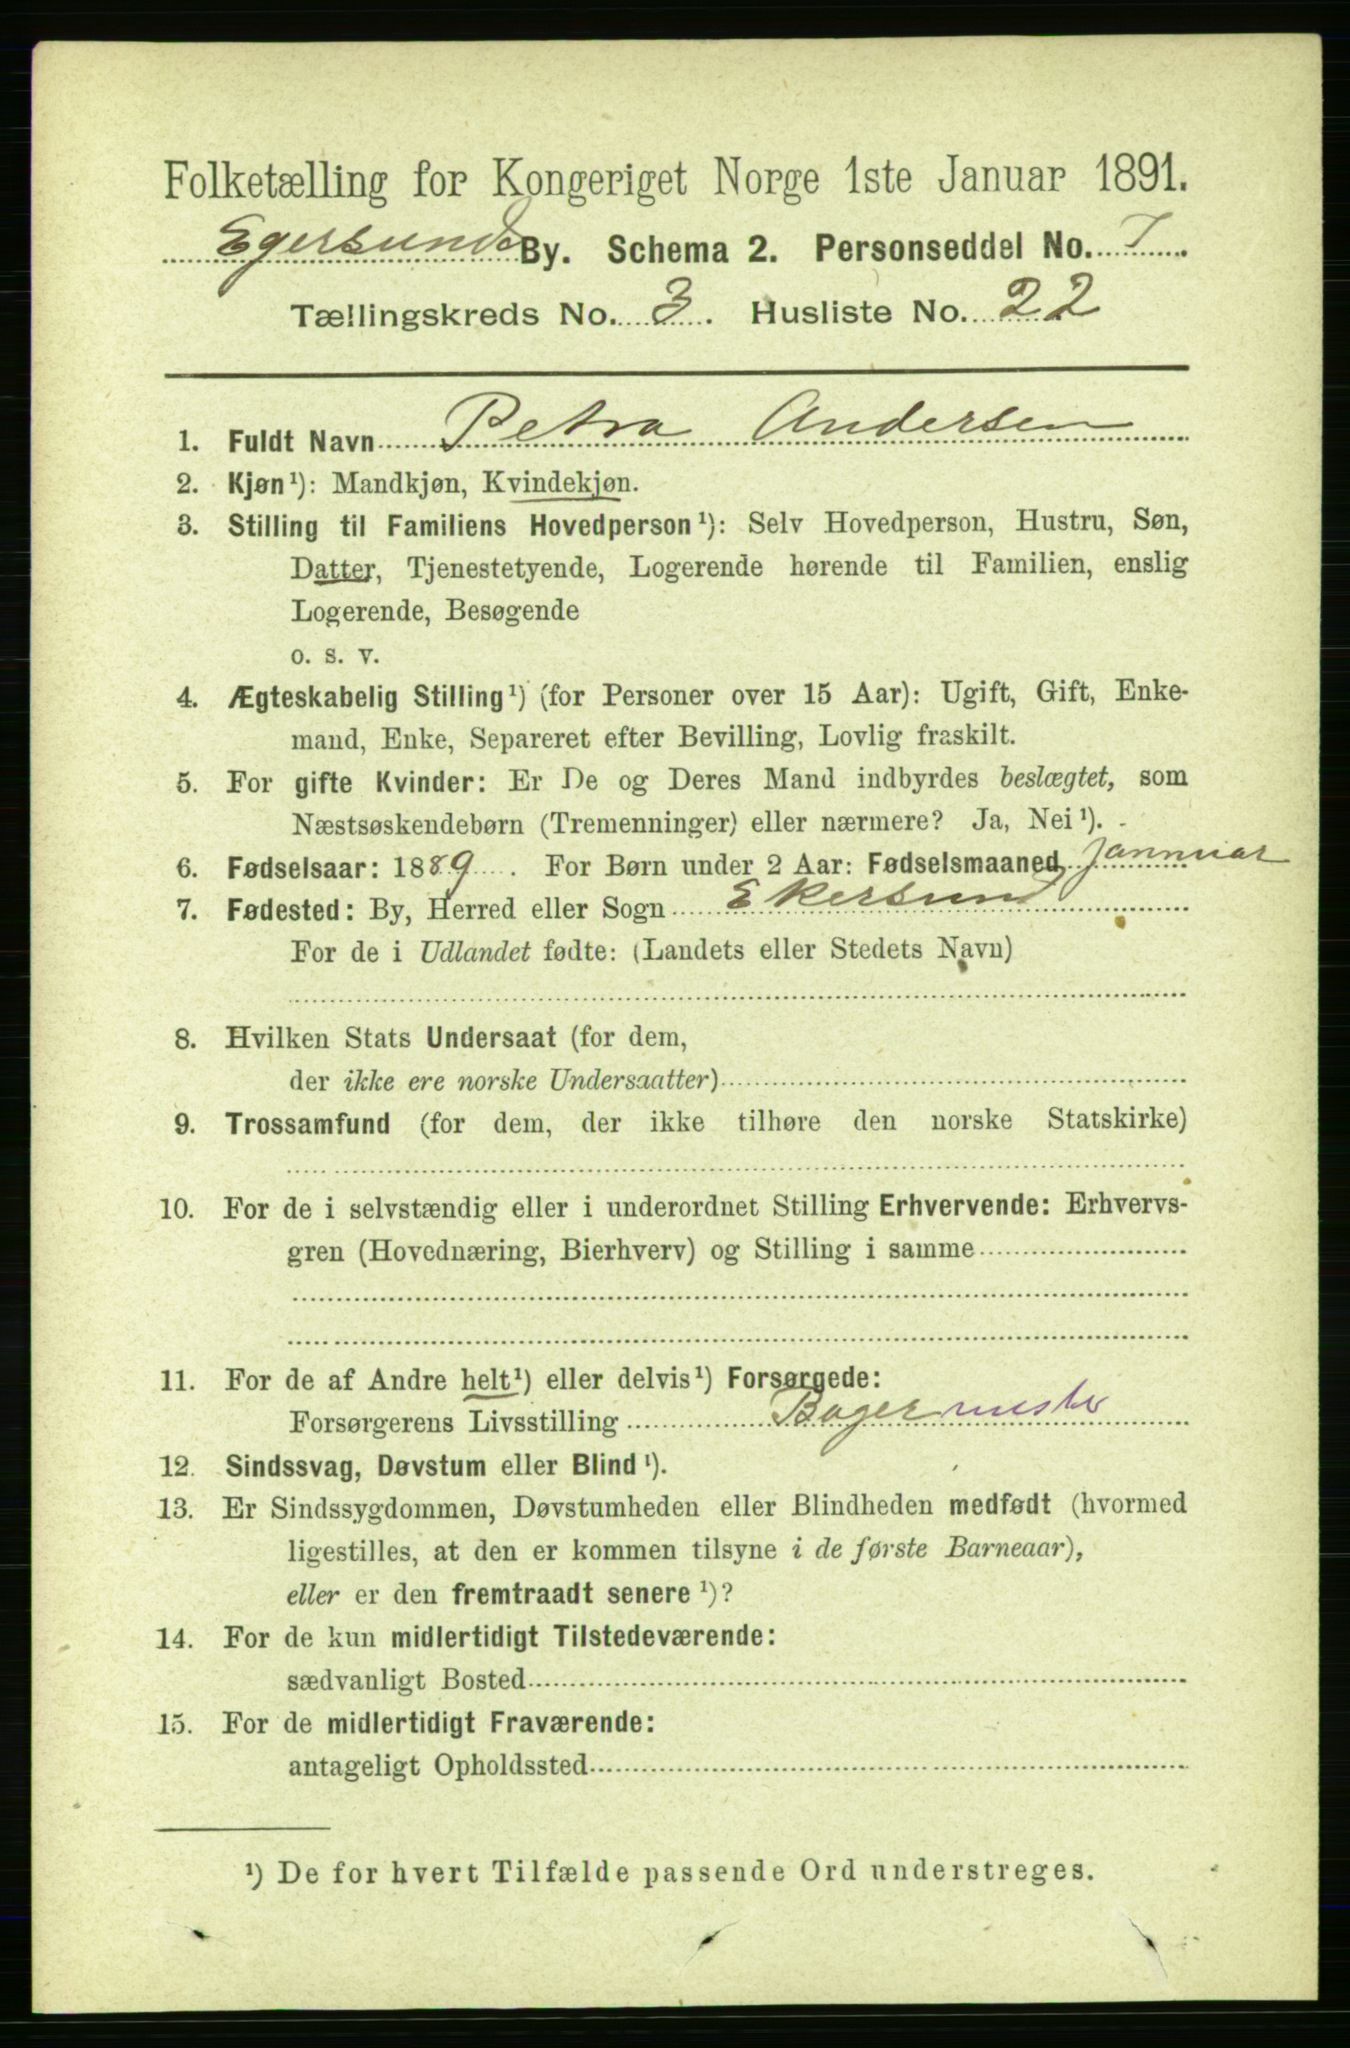 Folketælling for Kongeriget Norge 1ste Januar 1891.
Egersunds By. Schema 2. Personseddel No. 7
Tællingskreds No. 3. Husliste No. 22
1. Fuldt Navn Petra Andersen
2. Kjøn¹): Mandkjøn, Kvindekjøn.
3. Stilling til Familiens Hovedperson¹): Selv Hovedperson, Hustru, Søn,
Datter, Tjenestetyende, Logerende hørende til Familien, enslig
Logerende, Besøgende
o. s. v.
4. Ægteskabelig Stilling¹) (for Personer over 15 Aar): Ugift, Gift, Enke-
mand, Enke, Separeret efter Bevilling, Lovlig fraskilt.
5. For gifte Kvinder: Er De og Deres Mand indbyrdes beslægtet, som
Næstsøskendebørn (Tremenninger) eller nærmere? Ja, Nei¹).
6. Fødselsaar: 1889. For Børn under 2 Aar: Fødselsmaaned Jannuar
7. Fødested: By, Herred eller Sogn Ekersund
For de i Udlandet fødte: (Landets eller Stedets Navn)
8. Hvilken Stats Undersaat (for dem,
der ikke ere norske Undersaatter)
9. Trossamfund (for dem, der ikke tilhøre den norske Statskirke)
10. For de i selvstændig eller i underordnet Stilling Erhvervende: Erhvervs-
gren (Hovednæring, Bierhverv) og Stilling i samme
11. For de af Andre helt¹) eller delvis¹) Forsørgede:
Forsørgerens Livsstilling Bagermester
12. Sindssvag, Døvstum eller Blind¹).
13. Er Sindssygdommen, Døvstumheden eller Blindheden medfødt (hvormed
ligestilles, at den er kommen tilsyne i de første Barneaar),
eller er den fremtraadt senere¹)?
14. For de kun midlertidigt Tilstedeværende:
sædvanligt Bosted
15. For de midlertidigt Fraværende:
antageligt Opholdssted
¹) De for hvert Tilfælde passende Ord understreges.